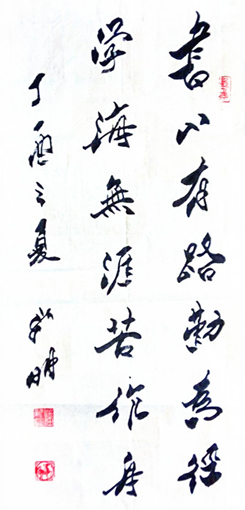 書山有路勤為徑
學海無涯苦作舟
丁酉之夏